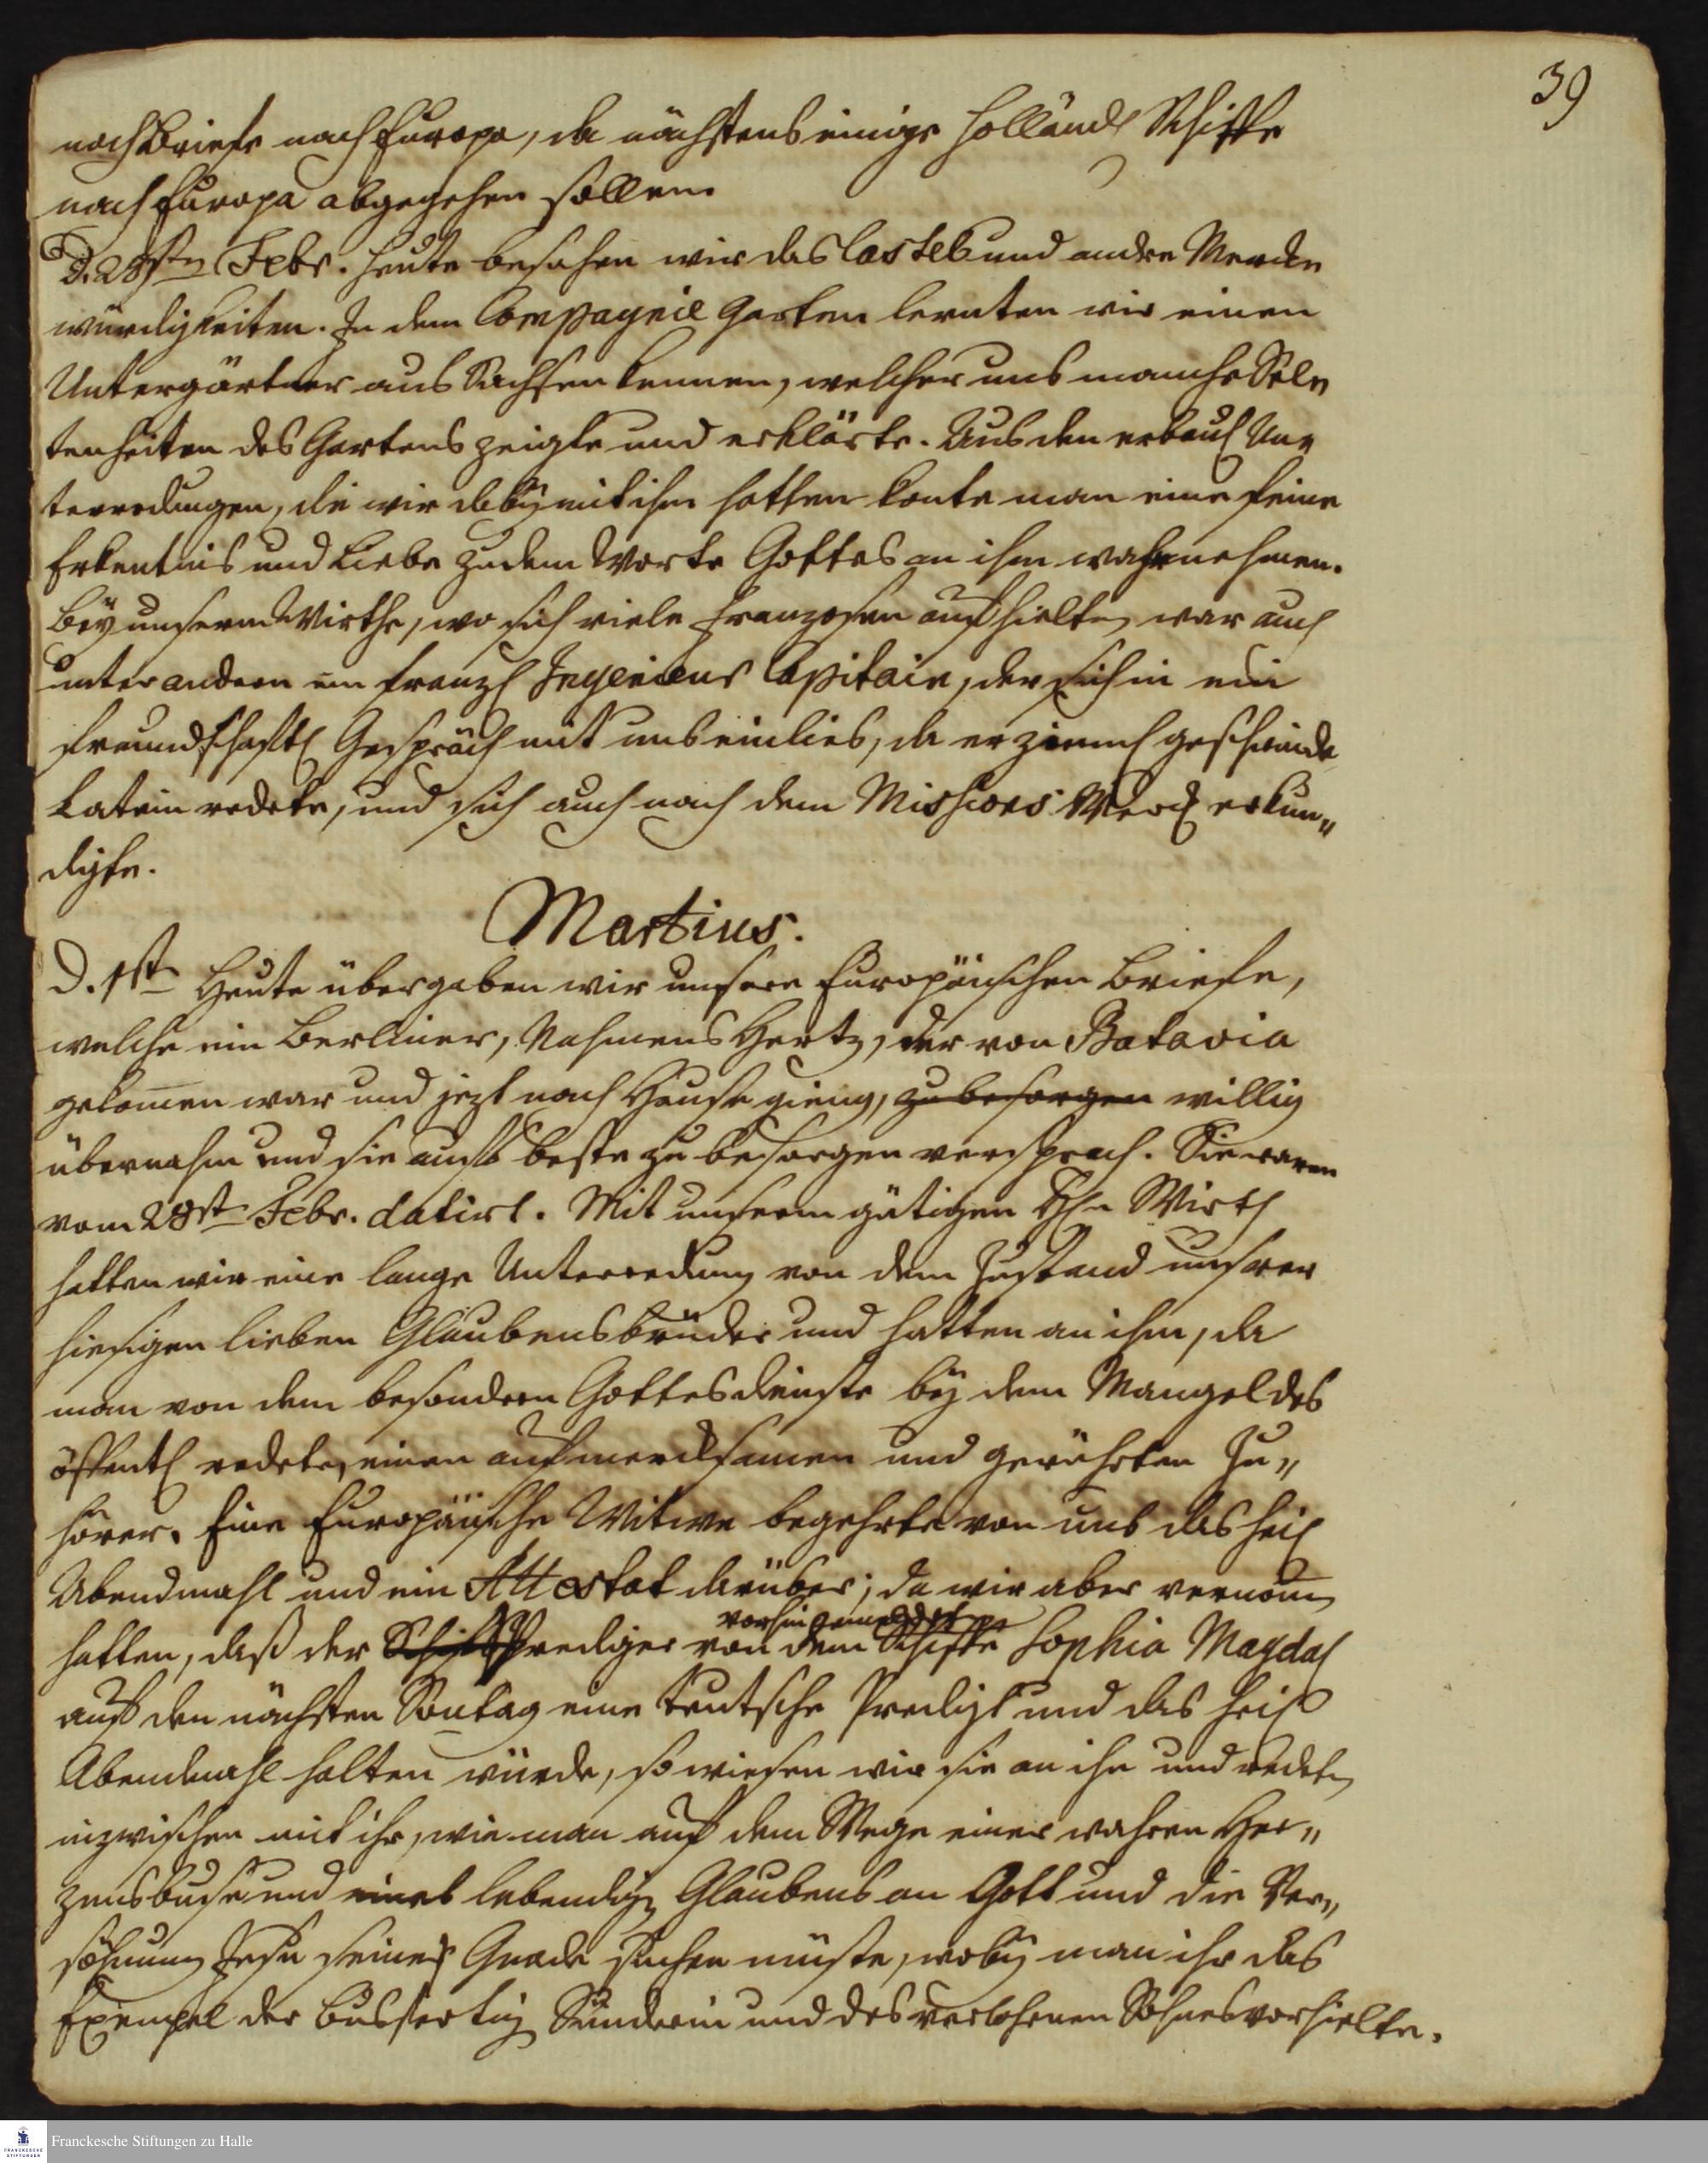 39
noch Briefe nach Europa, da nächstens einige Holländ. Schiffe
nach Europa abgegehen sollen.
D. 28sten Febr. Heute besahen wir das Castel und andre Merck
würdigkeiten. In dem Compagnie Garten lernten wir einen
Untergärtner aus Sachsen kennen, welcher uns manche Sel-
tenheiten des Gartens zeigte und erklärte. Aus den erbaul. Un-
terredungen, die wir dabey mit ihm hatten konte man eine feine
Erkentnis und Liebe zu dem Worte Gottes an ihm wahrnehmen.
Bey unserm Wirthe, wo sich viele Franzosen aufhielten, war auch
unter andern ein Franz. Ingenieur Capitain, der sich in ein
freundschaftl. Gespräch mit uns einlies, da er zieml. geschwinde
Latein redete, und sich auch nach dem Missions Werck erkun„
digte.
Martius.
D. 1st. Heute übergaben wir unsere Europäischen Briefe,
welche ein Berliner, Nahmens Hertz, der von Batavia
gekommen war und jezt nach Hause gieng, zu besorgen willig
übernahm und sie aufs beste zu besorgen versprach. Sie waren
vom 28st. Febr. datirt. Mit unserm gütigen H. Wirth
hatten wir eine lange Unterredung von dem Zustand unserer
hiesigen lieben Glaubensbrüder und hatten an ihm, da
man von dem besondern Gottesdienste bey dem Mangel des
öffentl. redete, einen aufmercksamen und gerührten Zu„
hörer. Eine Europäische Witwe begehrte von uns das heil.
Abendmahl und ein Attestat darüber; da wir aber vernomen
vorhin gemeldet
hatten, daß der Schifs Prediger von dem Schiffe Sophia Magdal.
auf den nächsten Sontag eine teutsche Predigt und das heil.
Abendmahl halten würde, so wiesen wir sie an ihn und redeten
inzwischen mit ihr, wie man auf dem Wege einer wahren Her„
zensbuße und eines lebendigen Glaubens an Gott und die Ver„
söhnung Jesu seine Gnade suchen müste, wobey man ihr das
Exempel der bussfertigen Sünderin und des verlohrnen Sohnes vorhielte.
Franckesche Stiftungen zu Halle